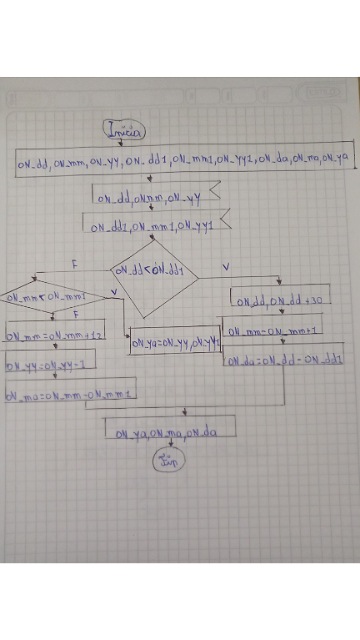 Inicia
ON_dd, ON_mm, ON_yy, ON_dd1, ON_mm1, ON_yy1, ON_da, ON_ma, ON_ya
ON_dd, ON mm, ON_yy
ON_dd1, ON_mm1, ON_yy1
F
ON_dd < ON_dd1
V
ON_mm < ON_mm1
V
F
ON_dd, ON_dd + 30
ON_mm = ON_mm + 12
ON_ya = ON_yy, ON_yy1
ON_mm = ON_mm + 1
ON_yy = ON_yy - 1
ON_da = ON_dd - ON_dd1
ON_ma = ON_mm - ON_mm1
ON_ya, ON_ma, ON_da
Fin